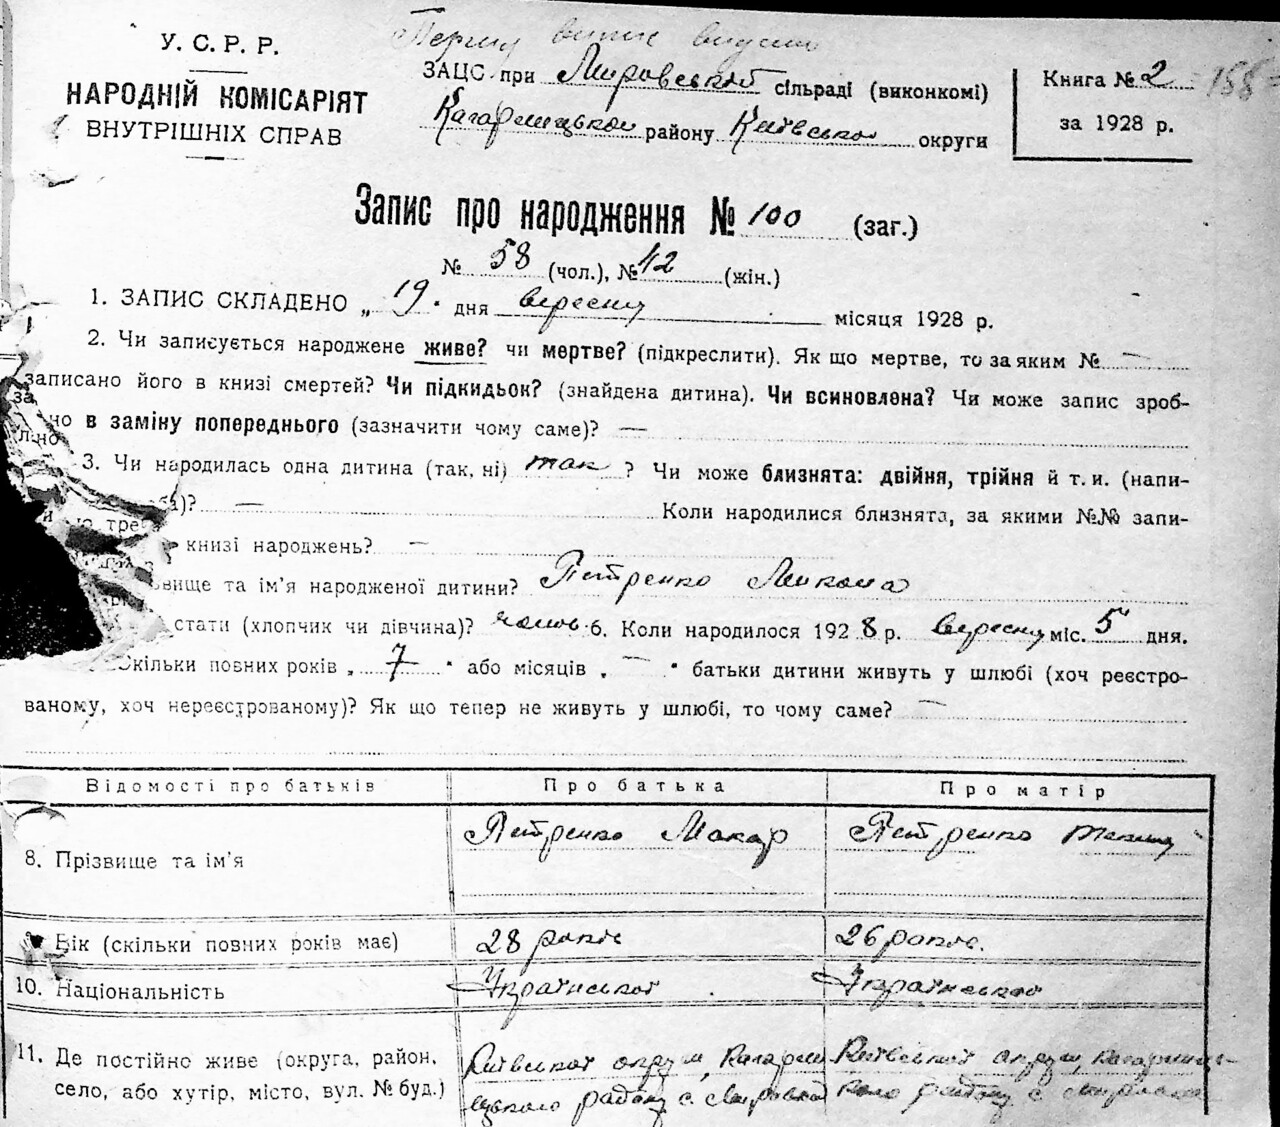 У. С. Р. Р.
НАРОДНІЙ КОМІСАРІЯТ
ВНУТРІШНІХ СПРАВ
Перш випис видано
ЗАЦС при Мировській сільраді (виконкомі)
Кагарлицького району Київської округи
Книга № 2 158
за 1928 р.
Запис про народження № 100 (заг.)
№ 58 (чол.), № 42 (жін.)
1. ЗАПИС СКЛАДЕНО „ 19 " дня вересня місяця 1928 р.
2. Чи записується народжене живе? чи мертве? (підкреслити). Як що мертве, то за яким № —
записано його в книзі смертей? Чи підкидьок? (знайдена дитина). Чи всиновлена? Чи може запис зроб-
но в заміну попереднього (зазначити чому саме)? —
3. Чи народилась одна дитина (так, ні) так ? Чи може близнята: двійня, трійня й т. и. (напи-
)? — Коли народилися близнята, за якими №№ запи-
книзі народжень? —
вище та ім'я народженої дитини? Петренко Микола
стати (хлопчик чи дівчина)? чолов. 6. Коли народилося 1928 р. вересня міс. 5 дня.
Скільки повних років „ 7 " або місяців „ — " батьки дитини живуть у шлюбі (хоч реєстро-
ваному, хоч нереєстрованому)? Як що тепер не живуть у шлюбі, то чому саме? —
Відомості про батьків Про батька Про матір
8. Прізвище та ім'я Петренко Макар Петренко
9. Вік (скільки повних років має) 28 років 26 років.
10. Національність Української Української
11. Де постійно живе (округа, район, Київської округи, Кагарли Київської округи, Кагарлиць-
село, або хутір, місто, вул. № буд.) цького району с. Мировка кого району с. Мировка